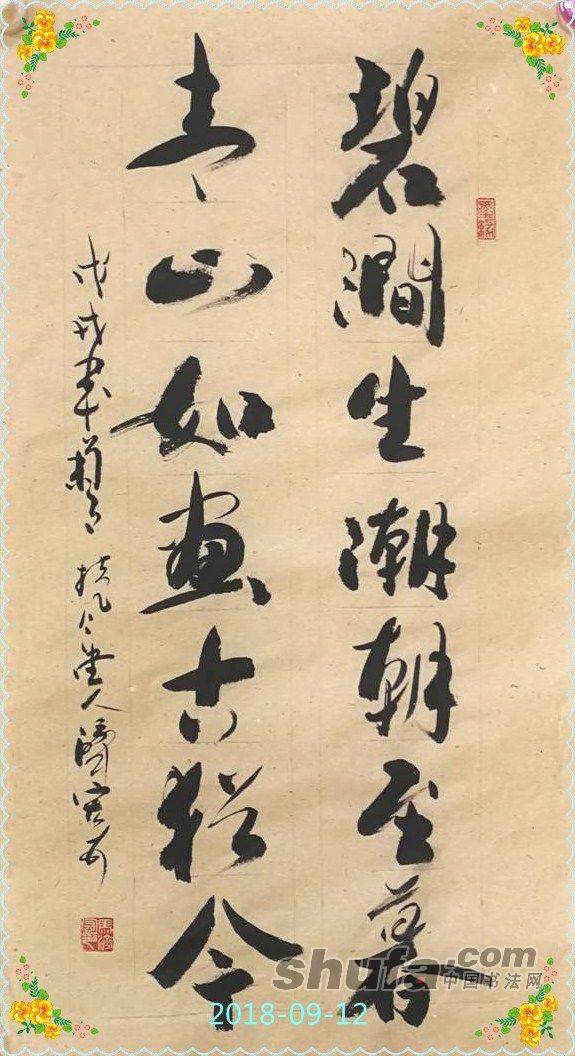 碧澗生潮朝至暮
青山如畫古猶今
戊戌
shufa.com
中国书法网
2018-09-12